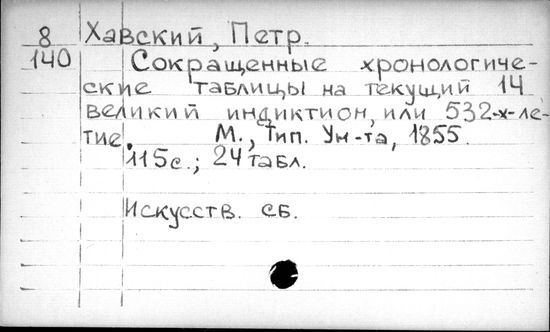 8 Хавский, Петр.
140 Сокращенные хронологиче-
ские таблицы на текущий 14
великий индиктион, или 532-х-ле-
тие. М., Тип. Ун-та, 1855.
115с.; 24 табл.
Искусств. сб.